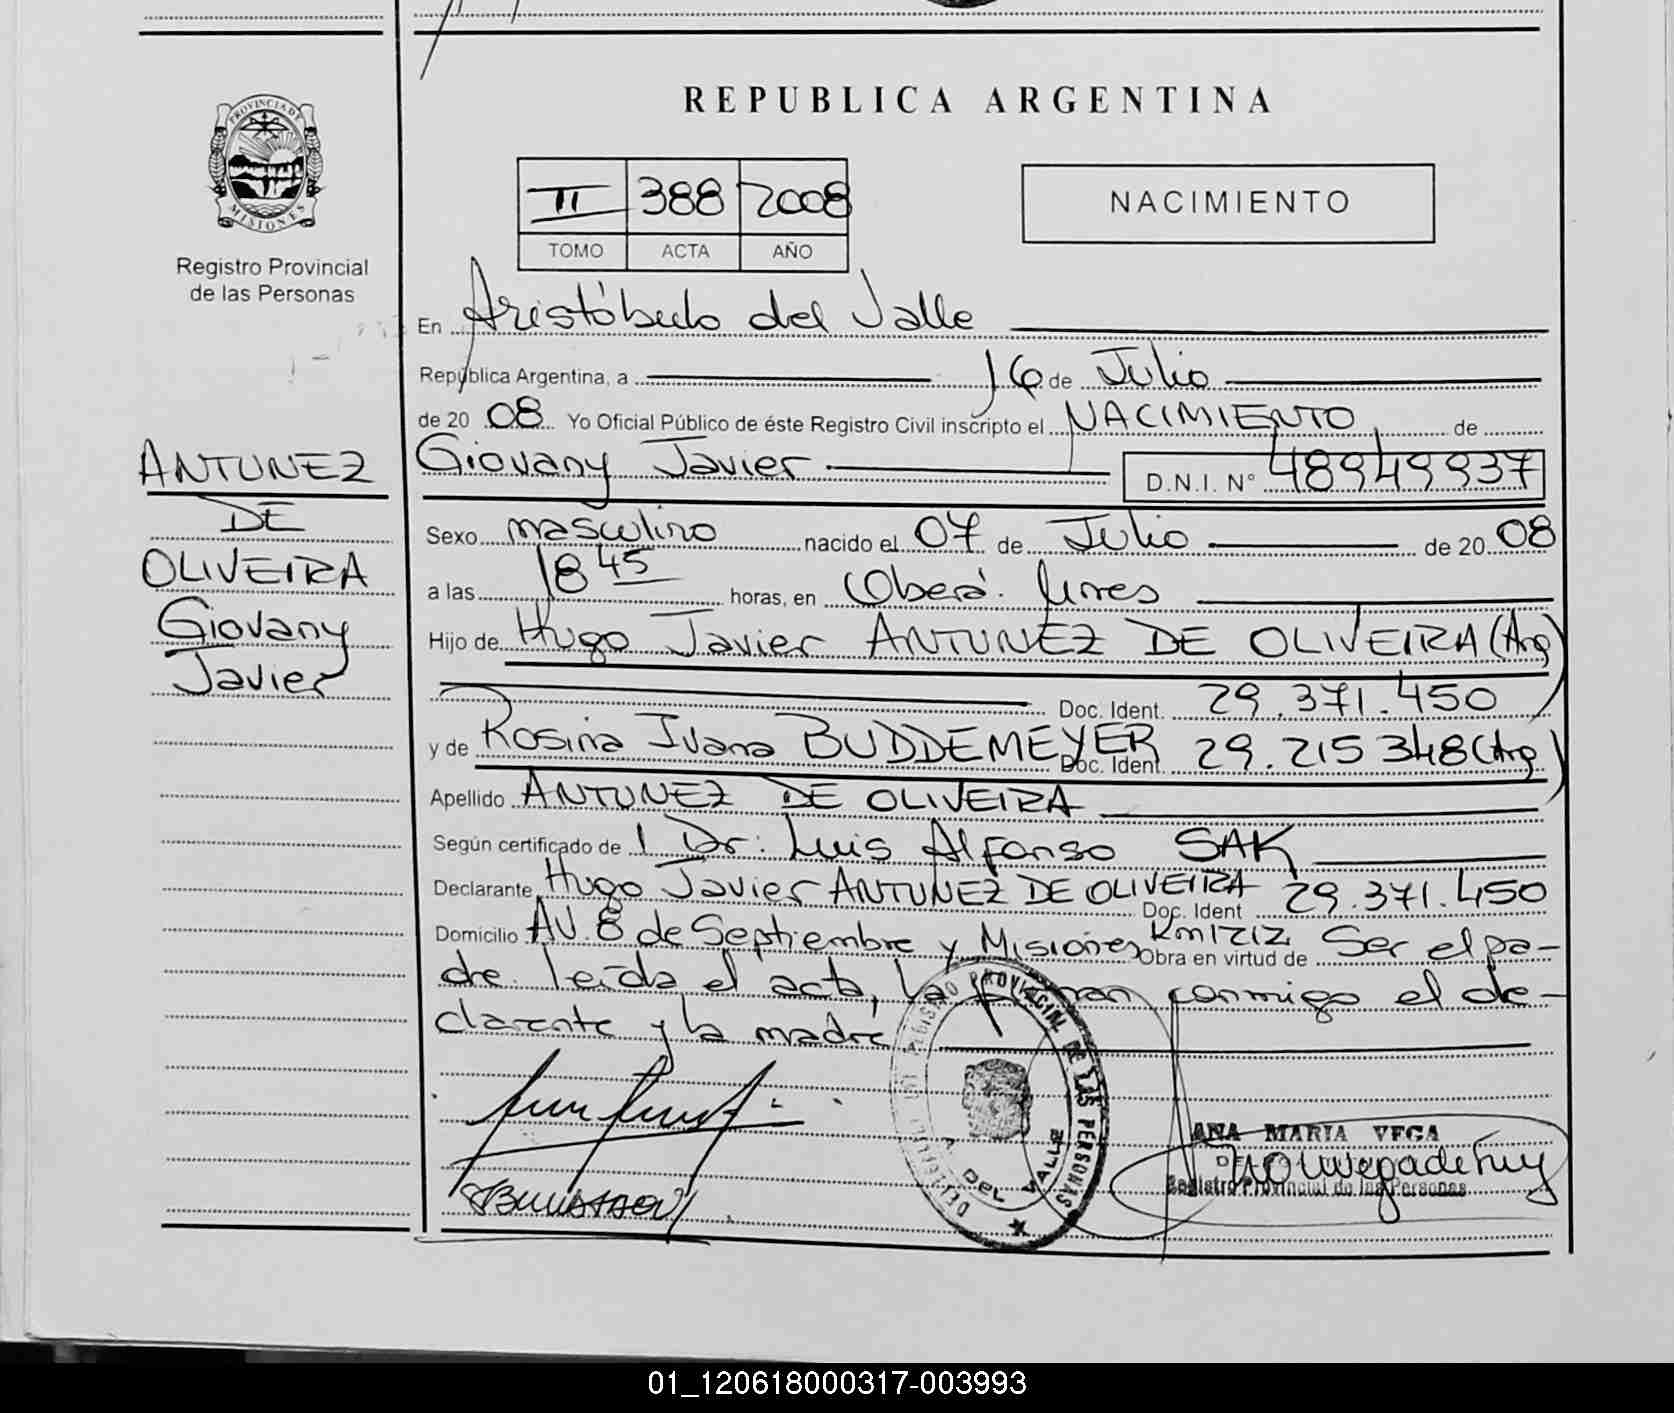 REPUBLICA ARGENTINA
PROVINCIA DE MISIONES
Registro Provincial
de las Personas
II 388 2008
TOMO ACTA AÑO
NACIMIENTO
En Aristóbulo del Valle
República Argentina, a 16 de Julio
de 20 08 Yo Oficial Público de éste Registro Civil inscripto el NACIMIENTO de
Giovany Javier D.N.I. N° 48949937
ANTUNEZ
DE
OLIVEIRA
Giovany
Javier
Sexo masculino nacido el 07 de Julio de 20 08
a las 18 45 horas, en Oberá.
Hijo de Hugo Javier ANTUNEZ DE OLIVEIRA (Arg)
Doc. Ident. 29.371.450
y de Rosina Ivana BUDDEMEYER Doc. Ident. 29.215348 (Arg)
Apellido ANTUNEZ DE OLIVEIRA
Según certificado de Dr. Luis Alfonso SAK
Declarante Hugo Javier ANTUNEZ DE OLIVEIRA Doc. Ident 29.371.450
Domicilio AV. 8 de Septiembre y Misiones Km1212 Obra en virtud de Ser el pa-
dre. leída el acta, la firman conmigo el de-
clarante y la madre
PROVINCIAL DE LAS PERSONAS
DEL VALLE
ANA MARIA VEGA
Registro Provincial de las Personas
01_120618000317-003993